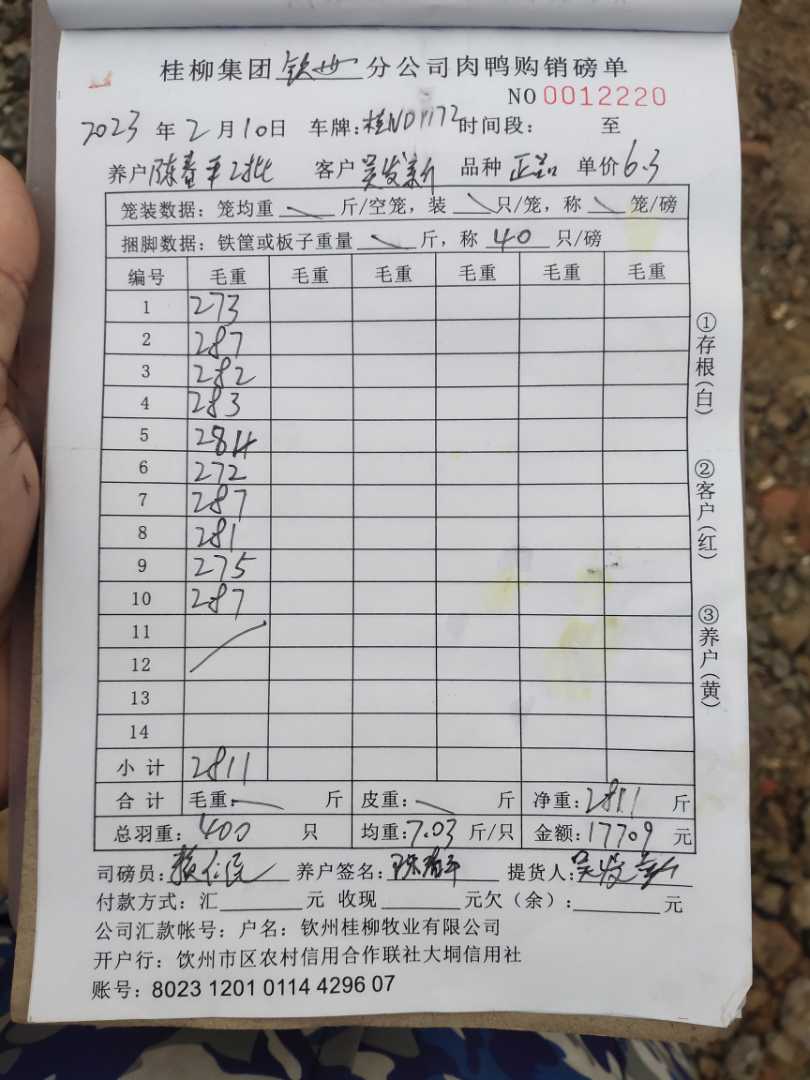 桂柳集团 钦州 分公司肉鸭购销磅单
NO 0012220
2023 年 2 月 10 日 车牌: 桂ND1172 时间段: 至
养户 陈春平2批 客户 吴发新 品种 正品 单价 6.3
笼装数据: 笼均重 斤/空笼, 装 只/笼, 称 笼/磅
捆脚数据: 铁筐或板子重量 斤, 称 40 只/磅
编号 毛重 毛重 毛重 毛重 毛重 毛重
1 273
2 287
3 282
4 283
5 284
6 272
7 287
8 281
9 275
10 287
11
12
13
14
小计 2811
合计 毛重: 斤 皮重: 斤 净重: 2811 斤
总羽重: 400 只 均重: 7.03 斤/只 金额: 17709 元
司磅员: 养户签名: 陈春平 提货人: 吴发新
付款方式: 汇 元 收现 元欠(余): 元
公司汇款帐号: 户名: 钦州桂柳牧业有限公司
开户行: 饮州市区农村信用合作联社大垌信用社
账号: 8023 1201 0114 4296 07
①存根(白)
②客户(红)
③养户(黄)